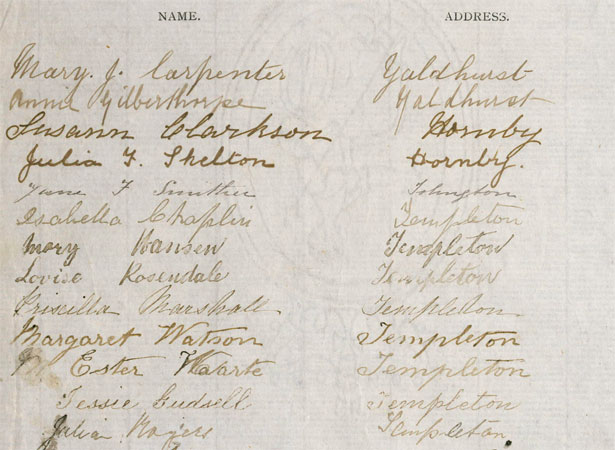 NAME. ADDRESS.
Mary. J. Carpenter Yaldhurst
Annie Gilberthorpe Yaldhurst
Susann Clarkson Hornby
Julia F. Shelton Hornby.
Jane F
Isabella Chaplin Templeton
Mary Hansen Templeton
Louise Rosendale Templeton
Priscilla Marshall Templeton
Margaret Watson Templeton
Ester Templeton
Jessie Gudsell Templeton
Julia Rogers Templeton